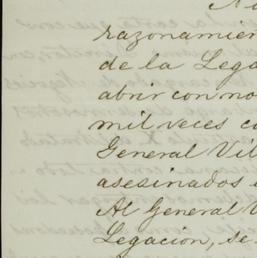 razonamien
de la Lega
abrir con no
mil veces co
General Vil
asesinados
Al General
Legacion, se